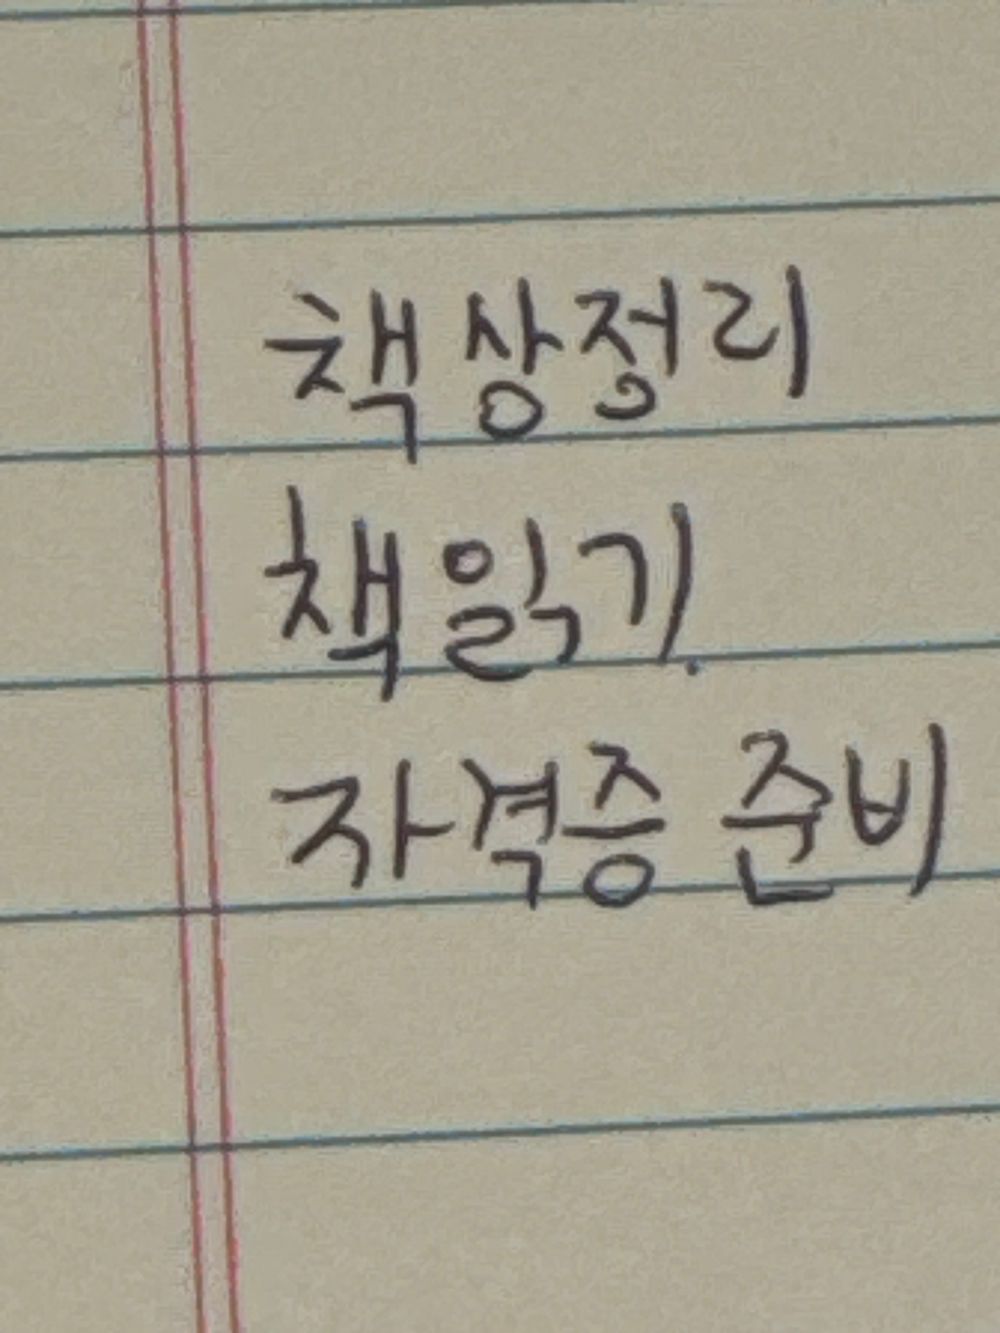 책상정리
책읽기.
자격증 준비